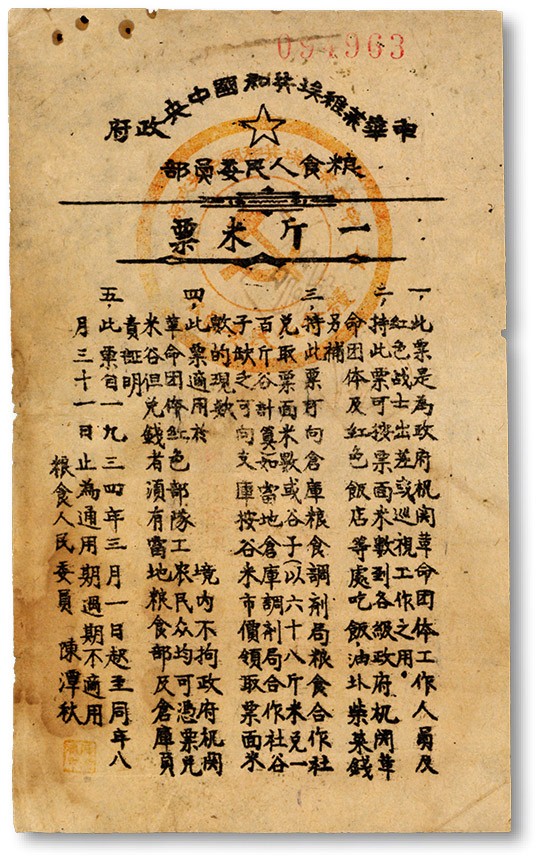 091963
中華蘇維埃共和國中央政府
粮食人民委員部
一斤米票
一、此票是為政府机関革命团体工作人員及
紅色战士出差或巡視工作之用。
二、持此票可按票面米數到各級政府机関革
命团体及紅色飯店等處吃飯,油圤柴菜錢
另補
三、持此票可向倉庫粮食調剂局粮食合作社
兑取票面米數或谷子(以六十八斤米兑一
百斤谷計算)如當地倉庫調剂局合作社谷
子缺乏可向支庫按谷米市價領取票面米
數的現款
四、此票適用於 境内不拘政府机関
革命团体紅色部隊工农民众均可憑票兑
米谷但兑錢者須有當地粮食部及倉庫員
責証明
五、此票自一九三四年三月一日起至同年八
月三十一日止為通用期過期不適用
粮食人民委員 陳潭秋